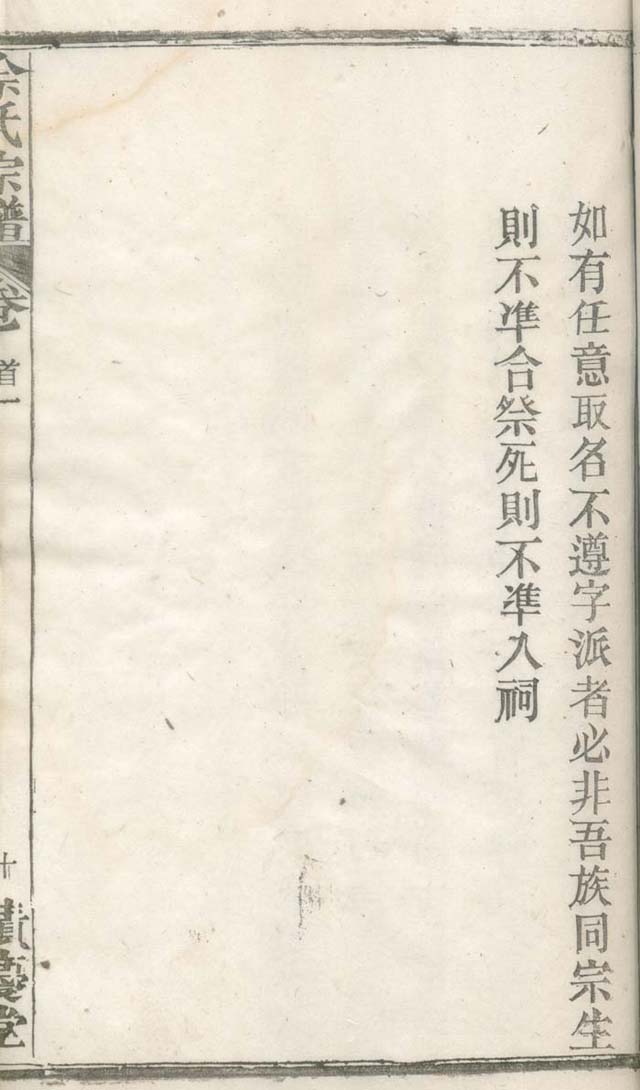 如有任意取名不遵字派者必非吾族同宗生
則不準合祭死則不準入祠
余氏宗譜
卷
首一
十
慶堂